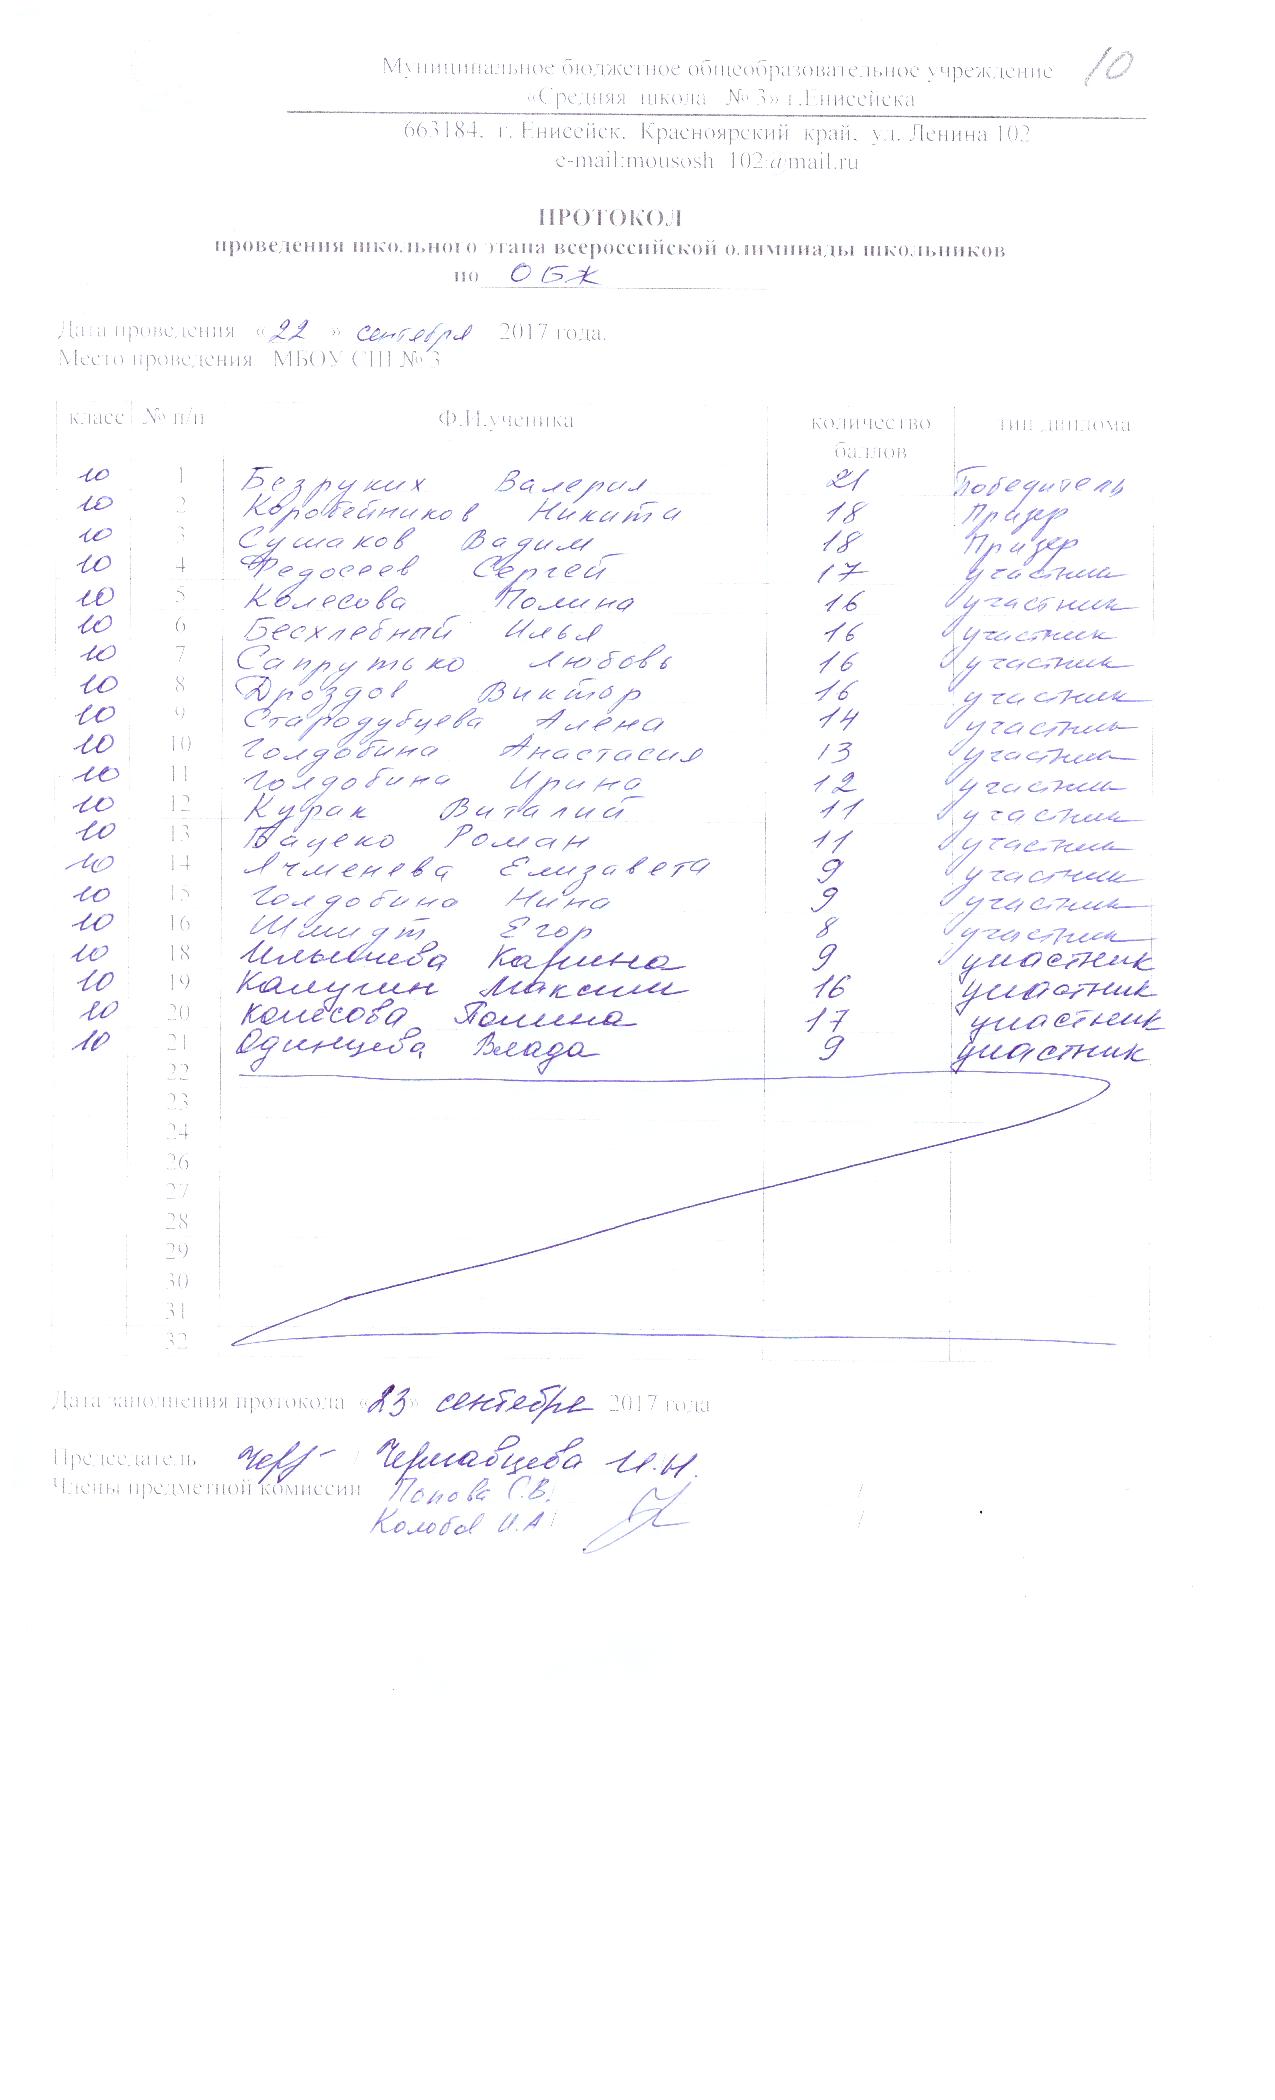 10
Муниципальное бюджетное общеобразовательное учреждение
«Средняя школа № 3» г.Енисейска
663184, г. Енисейск, Красноярский край, ул. Ленина 102
e-mail:mousosh_102@mail.ru
ПРОТОКОЛ
проведения школьного этапа всероссийской олимпиады школьников
по ОБЖ
Дата проведения «22» сентября 2017 года.
Место проведения МБОУ СШ № 3
класс № п/п Ф.И.ученика количество баллов тип диплома
10 1 Безруких Валерия 21 Победитель
10 2 Коробейников Никита 18 Призер
10 3 Сушаков Вадим 18 Призер
10 4 Федосеев Сергей 17 участник
10 5 Колесова Полина 16 участник
10 6 Бесхлебный Илья 16 участник
10 7 Сапрутько Любовь 16 участник
10 8 Дроздов Виктор 16 участник
10 9 Стародубцева Алена 14 участник
10 10 Голдобина Анастасия 13 участник
10 11 Голдобина Ирина 12 участник
10 12 Курак Виталий 11 участник
10 13 Роман 11 участник
10 14 Ячменева Елизавета 9 участник
10 15 Голдобина Нина 9 участник
10 16 Шмидт Егор 8 участник
10 18 Карина 9 участник
10 19 Калугин Максим 16 участник
10 20 Колесова Полина 17 участник
10 21 Одинцева Влада 9 участник
22
23
24
26
27
28
29
30
31
32
Дата заполнения протокола «23» сентебре 2017 года
Председатель / Чермавцева И.Н.
Члены предметной комиссии Попова С.В. /
Колобов И.А. /